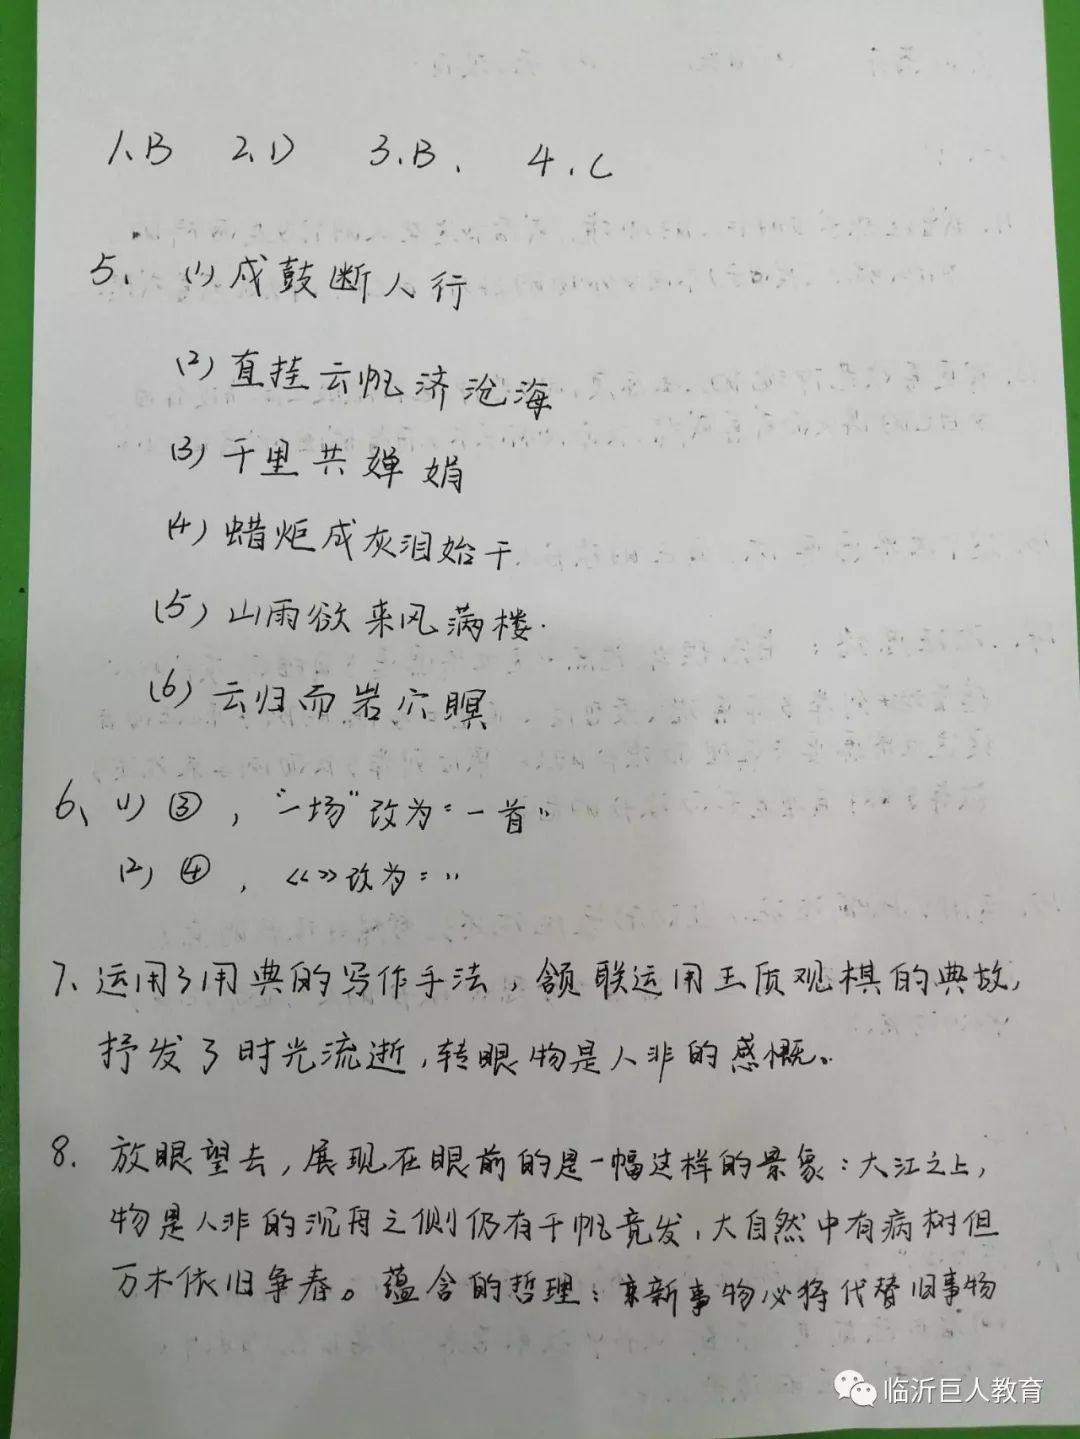 1、B 2、D 3、B、 4、C
5、(1)戍鼓断人行
(2)直挂云帆济沧海
(3)千里共婵娟
(4)蜡炬成灰泪始干
(5)山雨欲来风满楼.
(6)云归而岩穴暝
6、(1)③，“一场”改为“一首”
(2)④，《》改为“”
7、运用了用典的写作手法，颔联运用王质观棋的典故，
抒发了时光流逝，转眼物是人非的感慨。
8、放眼望去，展现在眼前的是一幅这样的景象：大江之上，
物是人非的沉舟之侧仍有千帆竞发，大自然中有病树但
万木依旧争春。蕴含的哲理：新事物必将代替旧事物
临沂巨人教育